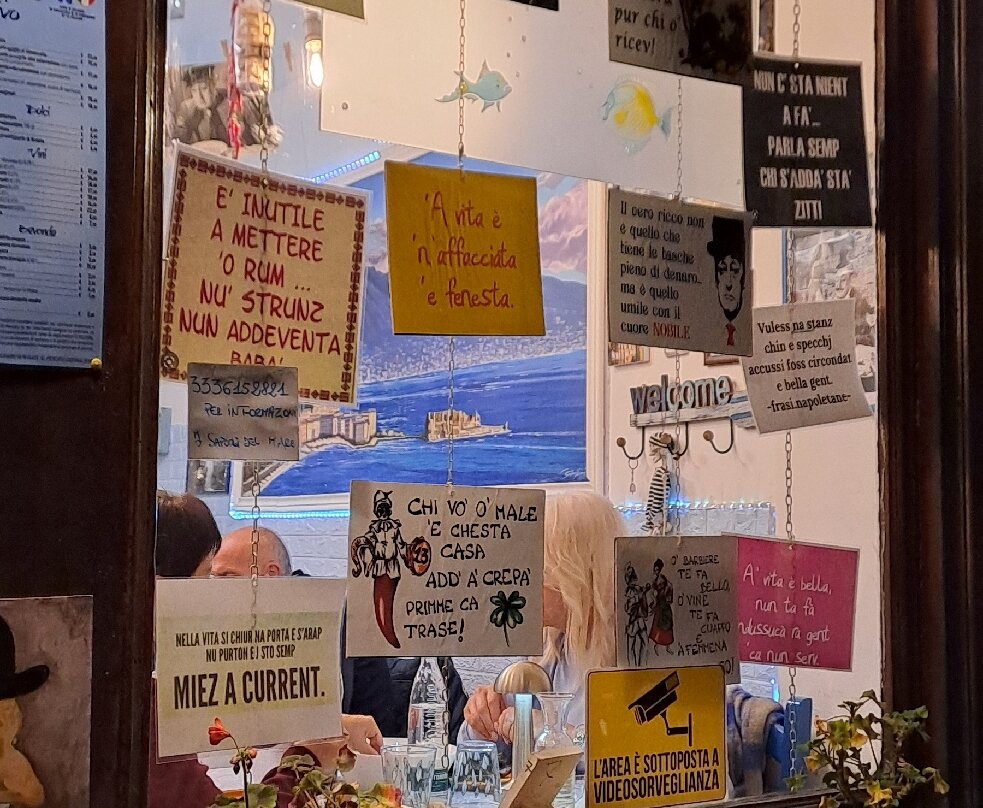 pur chi o'
ricev!
NON C'STA NIENT
A FA'...
PARLA SEMP
CHI S'ADDA' STA'
ZITTI
E' INUTILE
A METTERE
'O RUM ...
NU' STRUNZ
NUN ADDEVENTA
BABA'
'A vita è
'n'affacciata
'e fenesta.
Il vero ricco non
è quello che
tiene le tasche
pieno di denaro...
ma è quello
umile con il
cuore NOBILE
Vuless na stanz
chin e specchj
accussì foss circondat
e bella gent.
-frasi napoletane-
welcome
3336152821
PER INFORMAZIONI
I SAPORI DEL MARE
CHI VO' O' MALE
'E CHESTA
CASA
ADD' A' CREPA'
PRIMME CA
TRASE!
43
O' BARBIERE
TE FA
BELLO,
O' VINE
TE FA
GUAPPO
E
A FEMMENA
A' vita è bella,
nun ta fà
ntussucà ra gent
ca nun serv.
NELLA VITA SI CHIUR NA PORTA E S'ARAP
NU PURTON E I STO SEMP
MIEZ A CURRENT.
L'AREA È SOTTOPOSTA A
VIDEOSORVEGLIANZA
Vini
Bevande